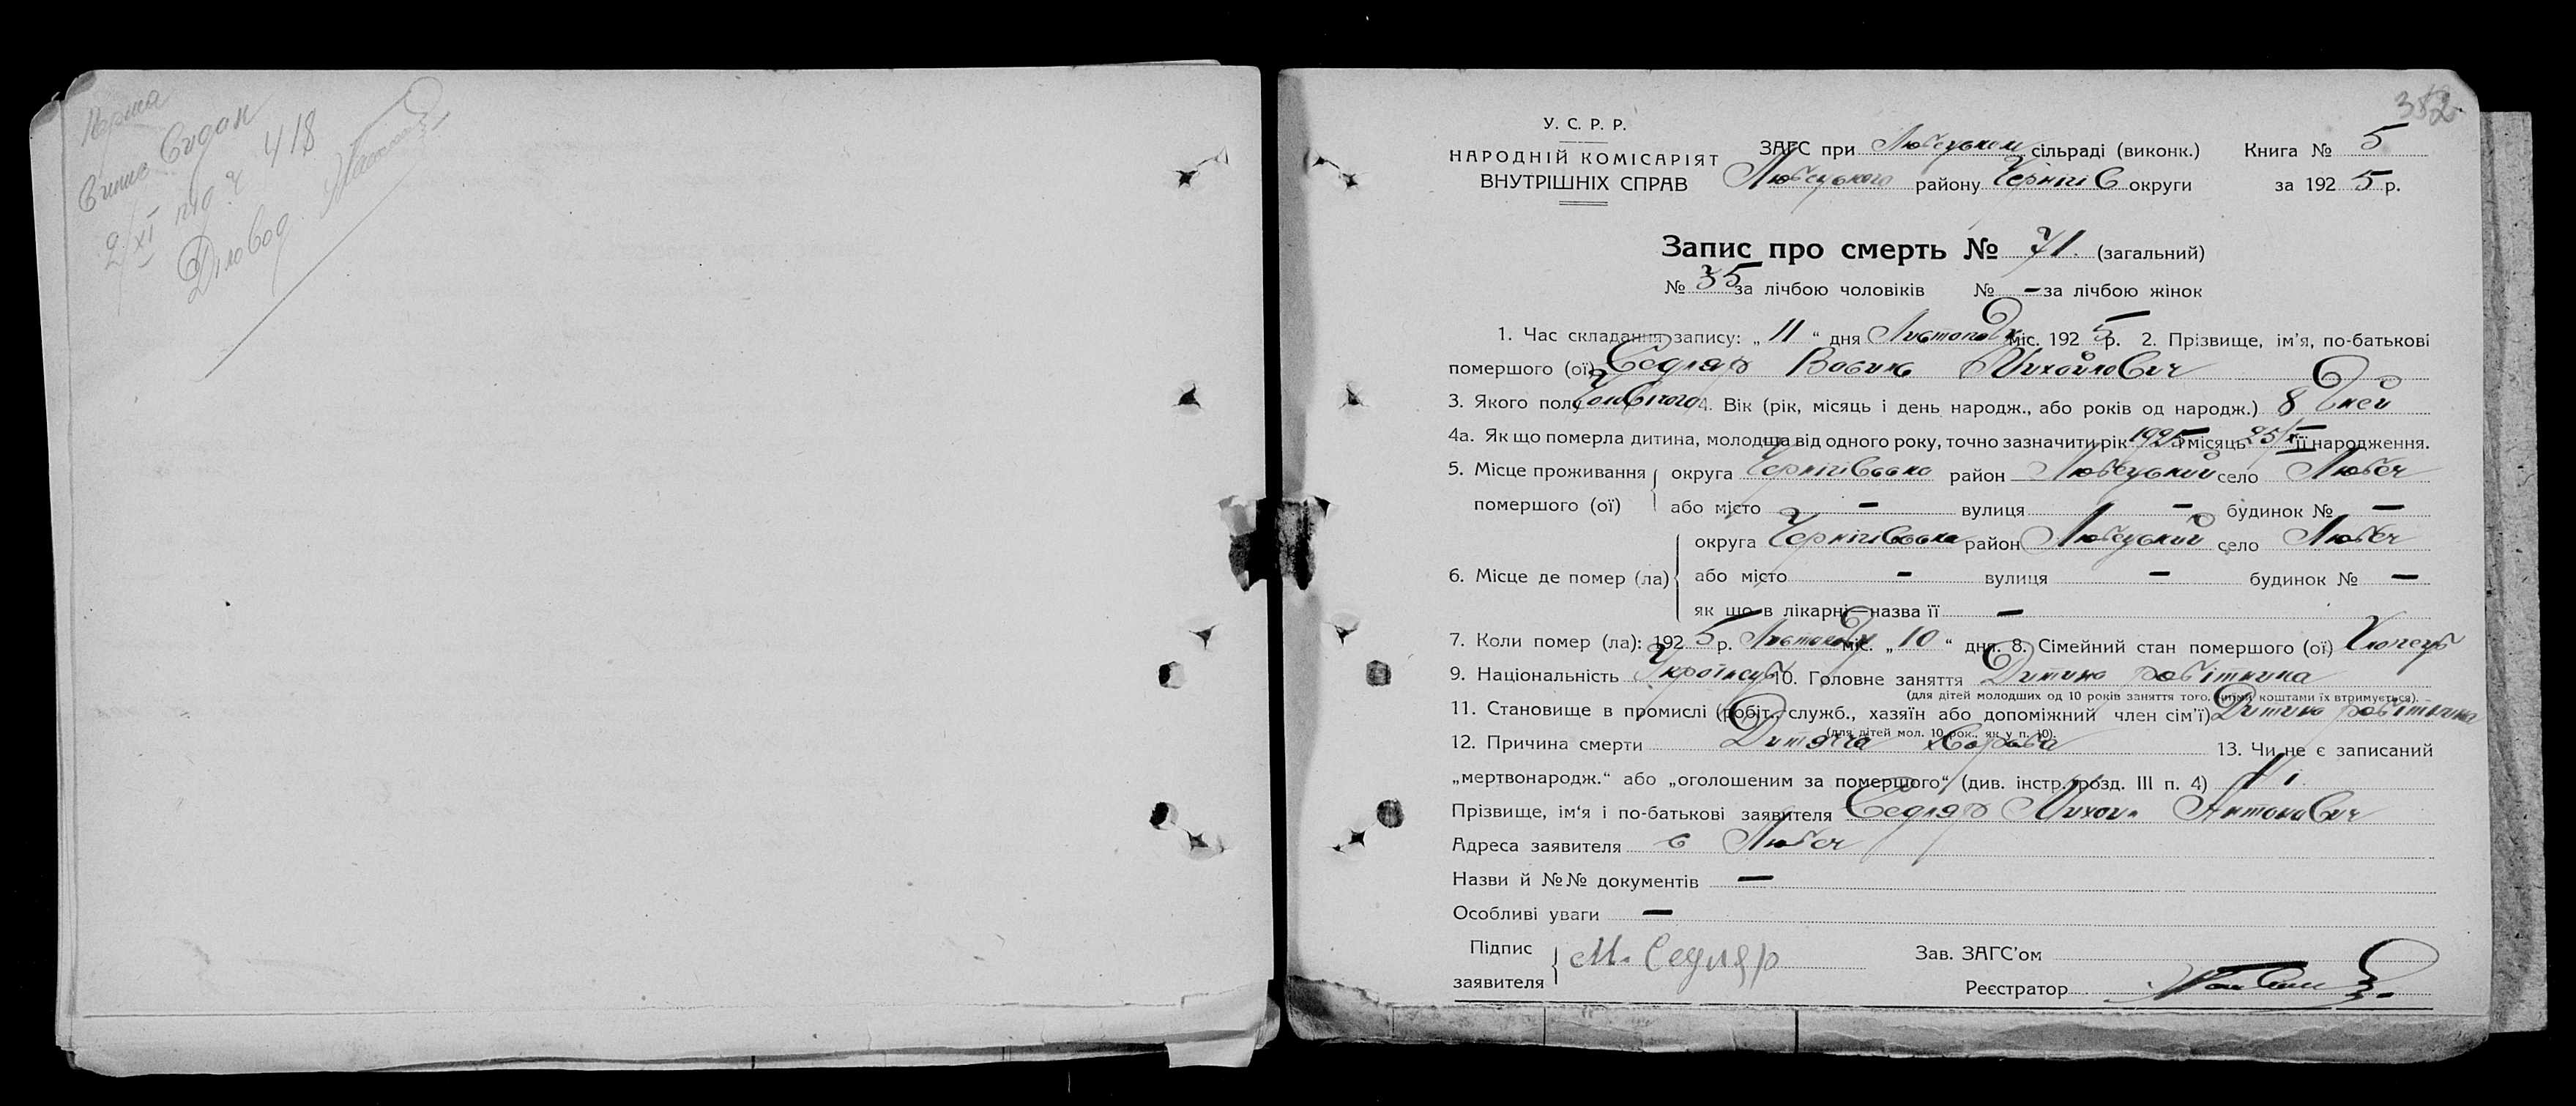 Перша
Випис видан
2/XI під ч 418
Діловод
352
У. С. Р. Р.
НАРОДНІЙ КОМІСАРІЯТ
ВНУТРІШНІХ СПРАВ
ЗАГС при Любецьком сільраді (виконк.) Книга № 5
Любецького району Чернігів округи за 1925 р.
Запис про смерть № 71. (загальний)
№ 35 за лічбою чоловіків № - за лічбою жінок
1. Час складання запису: „ 11 “ дня Листопада міс. 1925 р. 2. Прізвище, ім'я, по-батькові
помершого (ої) Седляр Михойлович
3. Якого полу Чоловічого 4. Вік (рік, місяць і день народж., або років од народж.) 8 Дней
4а. Як що померла дитина, молодша від одного року, точно зазначити рік 1925 і місяць 25/X її народження.
5. Місце проживання помершого (ої) округа Чернігівська район Любецький село Любеч
або місто - вулиця - будинок № -
6. Місце де помер (ла) округа Чернігівська район Любецький село Любеч
або місто - вулиця - будинок № -
як що в лікарні—назва її -
7. Коли помер (ла): 1925 р. Листопада міс. „ 10 “ дня. 8. Сімейний стан помершого (ої) Хлопець
9. Національність Українець 10. Головне заняття Дитина робітника
(для дітей молодших од 10 років заняття того, чиїми коштами їх втримується).
11. Становище в промислі (робіт., служб., хазяїн або допоміжний член сім'ї) Дитина робітника
(для дітей мол. 10 рок., як у п. 10).
12. Причина смерти Дитяча хороба 13. Чи не є записаний
„мертвонародж.“ або „оголошеним за помершого“ (див. інстр. розд. III п. 4) Ні.
Прізвище, ім'я і по-батькові заявителя Седляр Михоил Антонович
Адреса заявителя с Любеч
Назви й №№ документів —
Особливі уваги —
Підпис заявителя М. Седляр Зав. ЗАГС'ом
Реєстратор